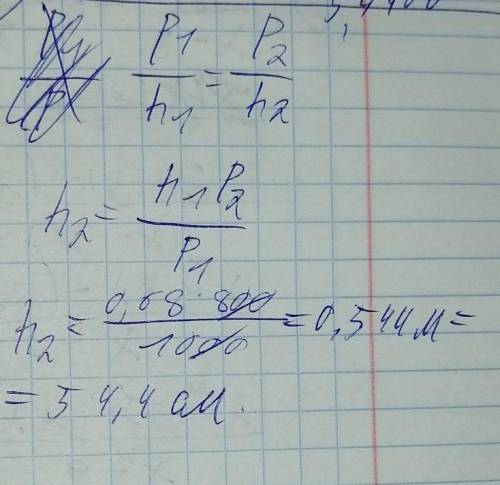 P1/h1 = P2/h2
h2 = h1 P2/P1
h2 = 0,68·800/1000 = 0,544м =
= 54,4 см.